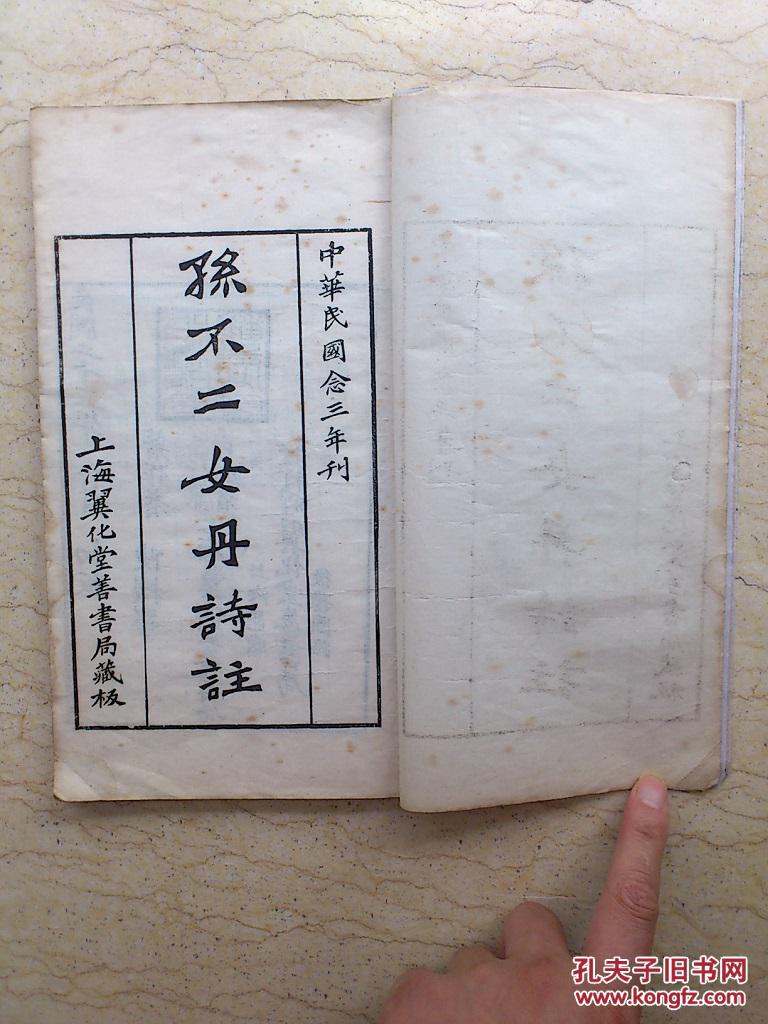 中華民國念三年刊
孫不二女丹詩註
上海翼化堂善書局藏板
孔夫子旧书网
www.kongfz.com